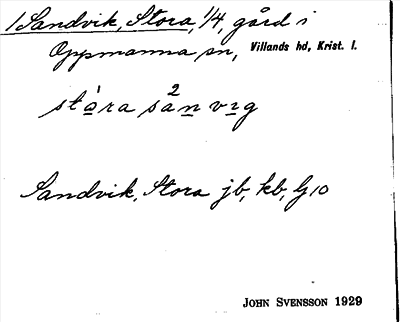 1 Sandvik, Stora, 1/4, gård i
Oppmanna sn, Villands hd, Krist. l.
stòra sa2n vɪg
Sandvik, Stora jb, kb, Gj 10
JOHN SVENSSON 1929